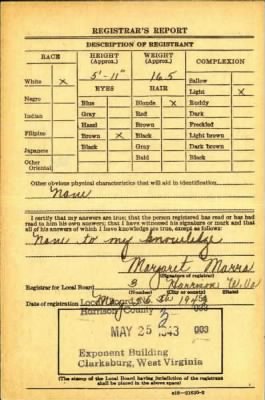 REGISTRAR'S REPORT
DESCRIPTION OF REGISTRANT
RACE HEIGHT (Approx.) WEIGHT (Approx.) COMPLEXION
5'-11" 165 Sallow
White X EYES HAIR Light X
Negro Blue Blonde X Ruddy
Indian Gray Red Dark
Hazel Brown Freckled
Filipino Brown X Black Light brown
Japanese Black Gray Dark brown
Other Oriental Bald Black
Other obvious physical characteristics that will aid in identification
None
I certify that my answers are true; that the person registered has read or has had
read to him his own answers; that I have witnessed his signature or mark and that
all of his answers of which I have knowledge are true, except as follows:
None to my knowledge
Margaret Marra
(Signature of registrar)
Registrar for Local Board 3 Harrison W. Va
(Number) (City or county) (State)
Date of registration
Local Board No. 3
Harrison County 033
MAY 25 1943 003
Exponent Building
Clarksburg, West Virginia
(The stamp of the Local Board having jurisdiction of the registrant
shall be placed in the above space)